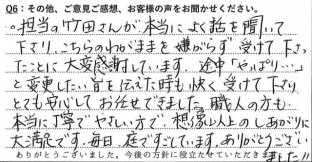 Q6：その他、ご意見ご感想、お客様の声をお聞かせください。
○担当の竹田さんが本当によく話を聞いて
下さり、こちらのわがままを嫌がらず受けて下さっ
たことに大変感謝しています。途中「やっぱり…」
と変更したい旨を伝えた時も快く受けて下さり
とても安心してお任せできました。職人の方も
本当に丁寧でやさしい方で、想像以上のしあがりに
大満足です。毎日、庭ですごしています。ありがとうござい
ありがとうございました。今後の方針に役立たせていただきます
ました!!